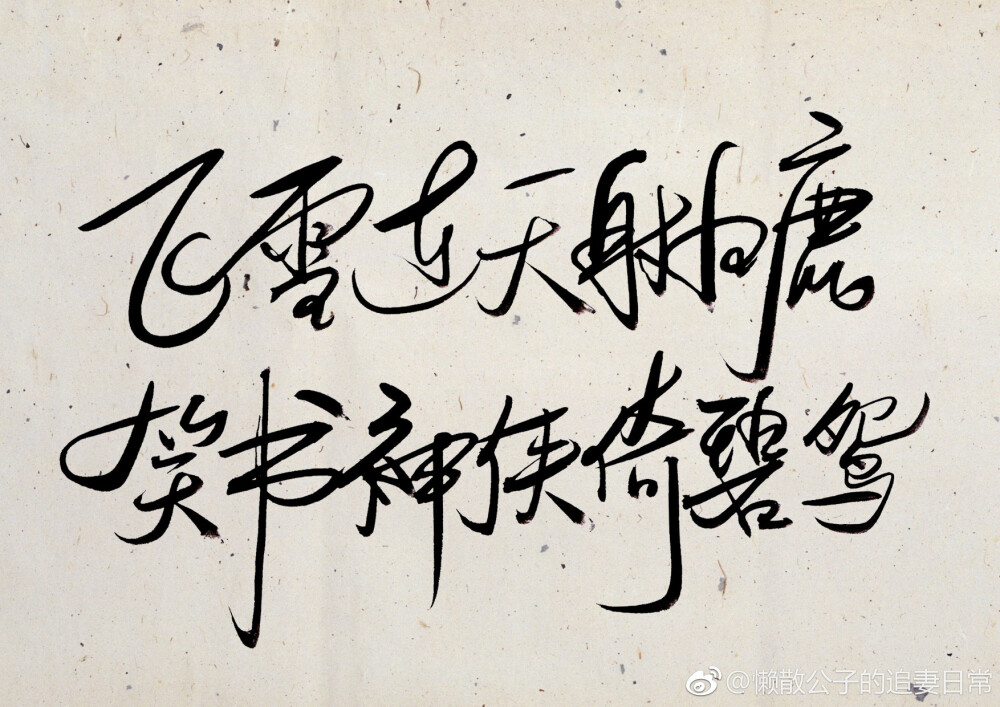 飞雪连天射白鹿
笑书神侠倚碧鸳
@懒散公子的追妻日常